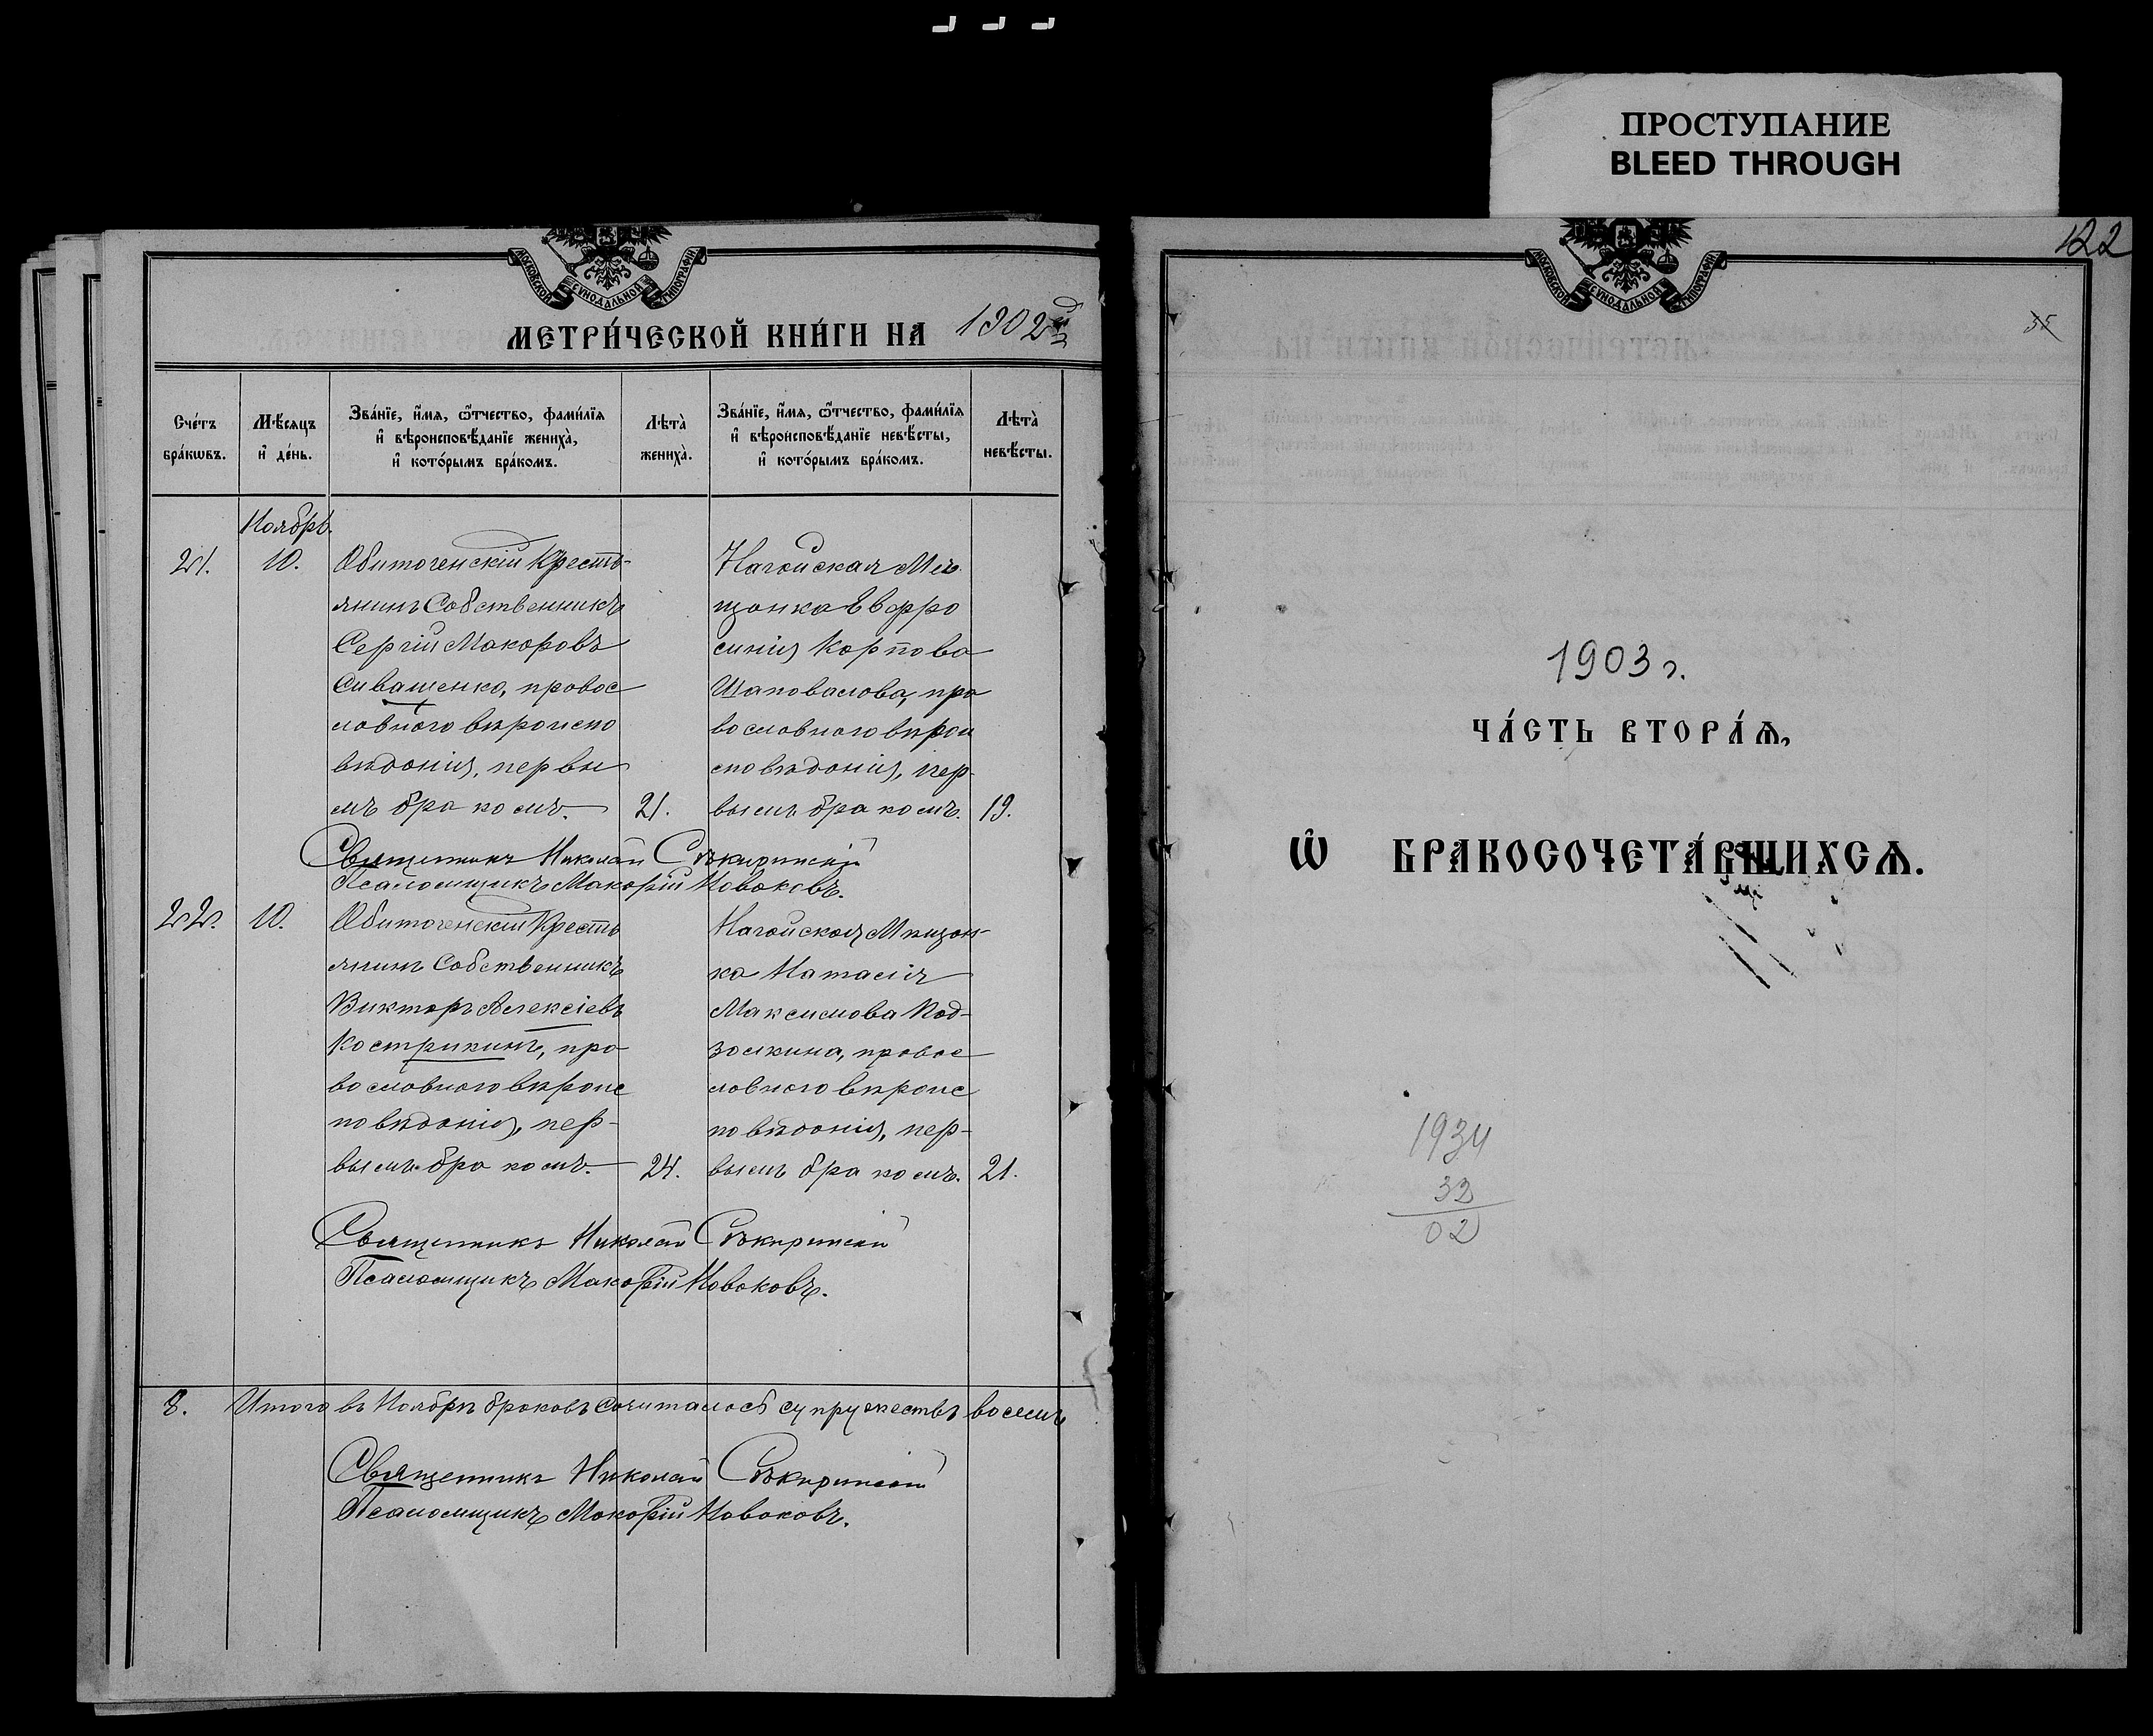 ПРОСТУПАНИЕ
BLEED THROUGH
МОСКОВСКОЙ СѴНОДАЛЬНОЙ ТИПОГРАФІИ
МЕТРИ́ЧЕСКОЙ КНИ́ГИ НА 1902
Сче́тъ бра́кωвъ.
Мѣ́сѧцъ и҆ де́нь.
Зва́нїе, и҆́мѧ, ѻ҆́тчество, фами́лїѧ
и҆ вѣроисповѣ́данїе жениха̀,
и҆ кото́рымъ бра́комъ.
Лѣта̀ жениха̀.
Зва́нїе, и҆́мѧ, ѻ҆́тчество, фами́лїѧ
и҆ вѣроисповѣ́данїе невѣ́сты,
и҆ кото́рымъ бра́комъ.
Лѣта̀ невѣ́сты.
Ноябрь.
21. 10.
Обиточенскій Кресть-
янинъ Собственникъ
Сергій Макаровъ
Сиващенко, правос
лавного вѣроиспо
вѣданія, первы
мъ бракомъ. 21.
Ногайская Мѣ
щанка Евфро
синія Карпова
Шаповалова, пра
вославного вѣрои
сповѣданія, пер-
вымъ бракомъ. 19.
Священникъ Николай Сѣкиринскій
Псаломщикъ Макарій Новаковъ.
22. 10.
Обиточенскій Кресть
янинъ Собственникъ
Викторъ Алексіевъ
Кострикинъ, пра
вославного вѣроис
повѣданія, пер-
вымъ бракомъ. 24.
Ногайская Мѣщан-
ка Наталія
Максимова Под-
золкина, правос
лавного вѣроис
повѣданія, пер-
вымъ бракомъ. 21.
Священникъ Николай Сѣкиринскій
Псаломщикъ Макарій Новаковъ.
8. Итого въ Ноябрѣ браковъ сочиталось супружествъ восемь
Священникъ Николай Сѣкиринскій
Псаломщикъ Макарій Новаковъ.
МОСКОВСКОЙ СѴНОДАЛЬНОЙ ТИПОГРАФІИ
122
35
1903 г.
ЧА́СТЬ ВТОРА́Ѧ,
Ѡ҆ БРАКОСОЧЕТА́ВШИХСѦ.
1934
32
02